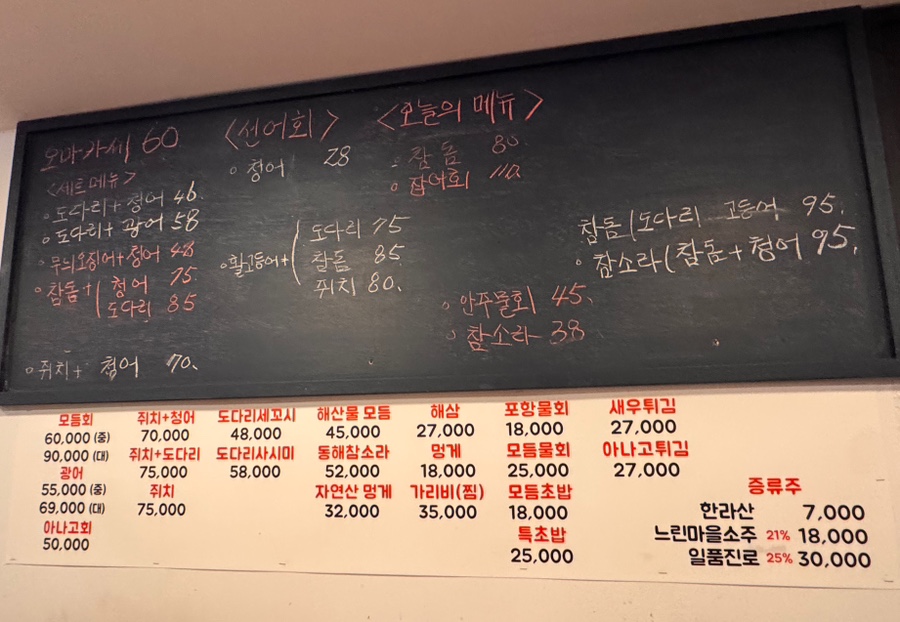 오마카세 60
<세트메뉴>
도다리+청어 46
도다리+광어 58
무늬오징어+청어 48
참돔+( 청어 75
도다리 85
쥐치+ 청어 70.
<선어회>
청어 28
활고등어+( 도다리 75
참돔 85
쥐치 80.
<오늘의 메뉴>
참돔 80
잡어회 110.
안주물회 45.
참소라 38
참돔(도다리 고등어 95.
참소라(참돔+청어 95.
모듬회
60,000 (중)
90,000 (대)
광어
55,000 (중)
69,000 (대)
아나고회
50,000
쥐치+청어
70,000
쥐치+도다리
75,000
쥐치
75,000
도다리세꼬시
48,000
도다리사시미
58,000
해산물 모듬
45,000
동해참소라
52,000
자연산 멍게
32,000
해삼
27,000
멍게
18,000
가리비(찜)
35,000
포항물회
18,000
모듬물회
25,000
모듬초밥
18,000
특초밥
25,000
새우튀김
27,000
아나고튀김
27,000
증류주
한라산 7,000
느린마을소주 21% 18,000
일품진로 25% 30,000